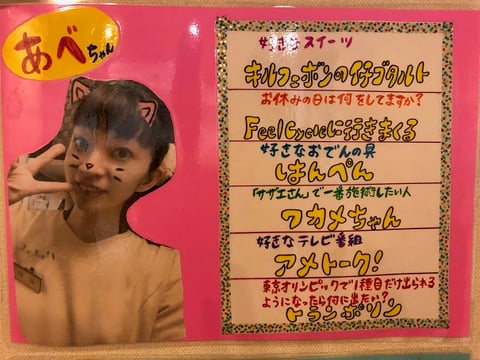 あべちゃん
好きなスイーツ
キルフェボンのイチゴタルト
お休みの日は何をしてますか?
FeelCycleに行きまくる
好きなおでんの具
はんぺん
「サザエさん」で一番施術したい人
ワカメちゃん
好きなテレビ番組
アメトーク!
東京オリンピックで1種目だけ出られる
ようになったら何に出たい?
トランポリン